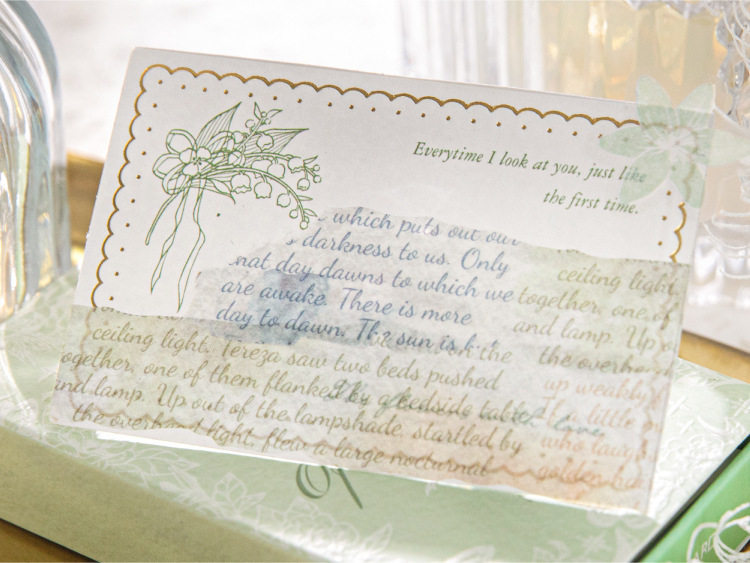 Everytime I look at you, just like
the first time.
which puts out our
darkness to us. Only
day dawns to which we
are awake. There is more
day to dawn. The sun is
ceiling light
together, one of
and lamp. Up
the overhead
up weakly
a little
who laugh
golden
the
ceiling light. Tereza saw two beds pushed
together, one of them flanked by a bedside table
and lamp. Up out of the lampshade, startled by
the overhead light, flew a large nocturnal